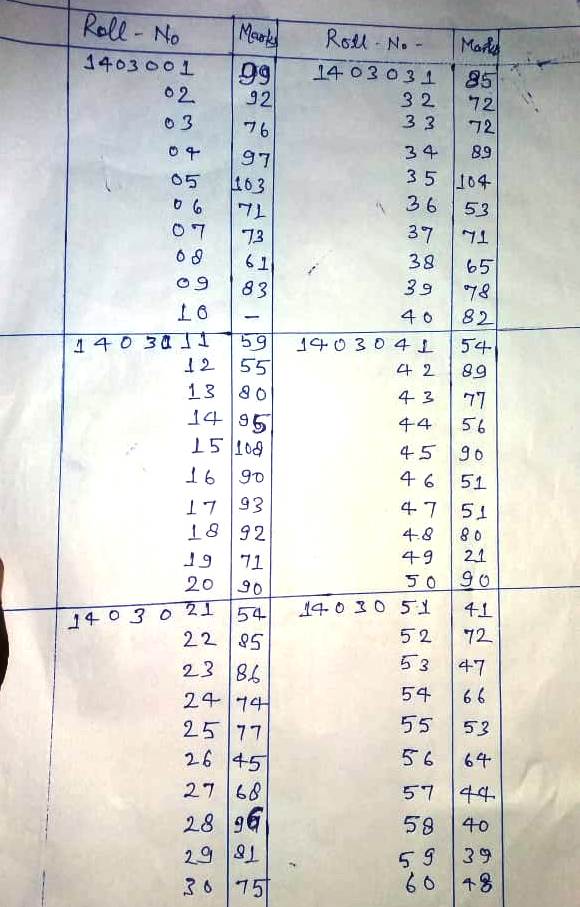 Roll - No Marks Roll - No - Marks
1403001 99 1403031 85
02 92 32 72
03 76 33 72
04 97 34 89
05 103 35 104
06 71 36 53
07 73 37 71
08 61 38 65
09 83 39 78
10 - 40 82
1403011 59 1403041 54
12 55 42 89
13 80 43 77
14 95 44 56
15 108 45 90
16 90 46 51
17 93 47 51
18 92 48 80
19 71 49 21
20 90 50 90
1403021 54 1403051 41
22 85 52 72
23 86 53 47
24 74 54 66
25 77 55 53
26 45 56 64
27 68 57 44
28 96 58 40
29 81 59 39
30 75 60 48